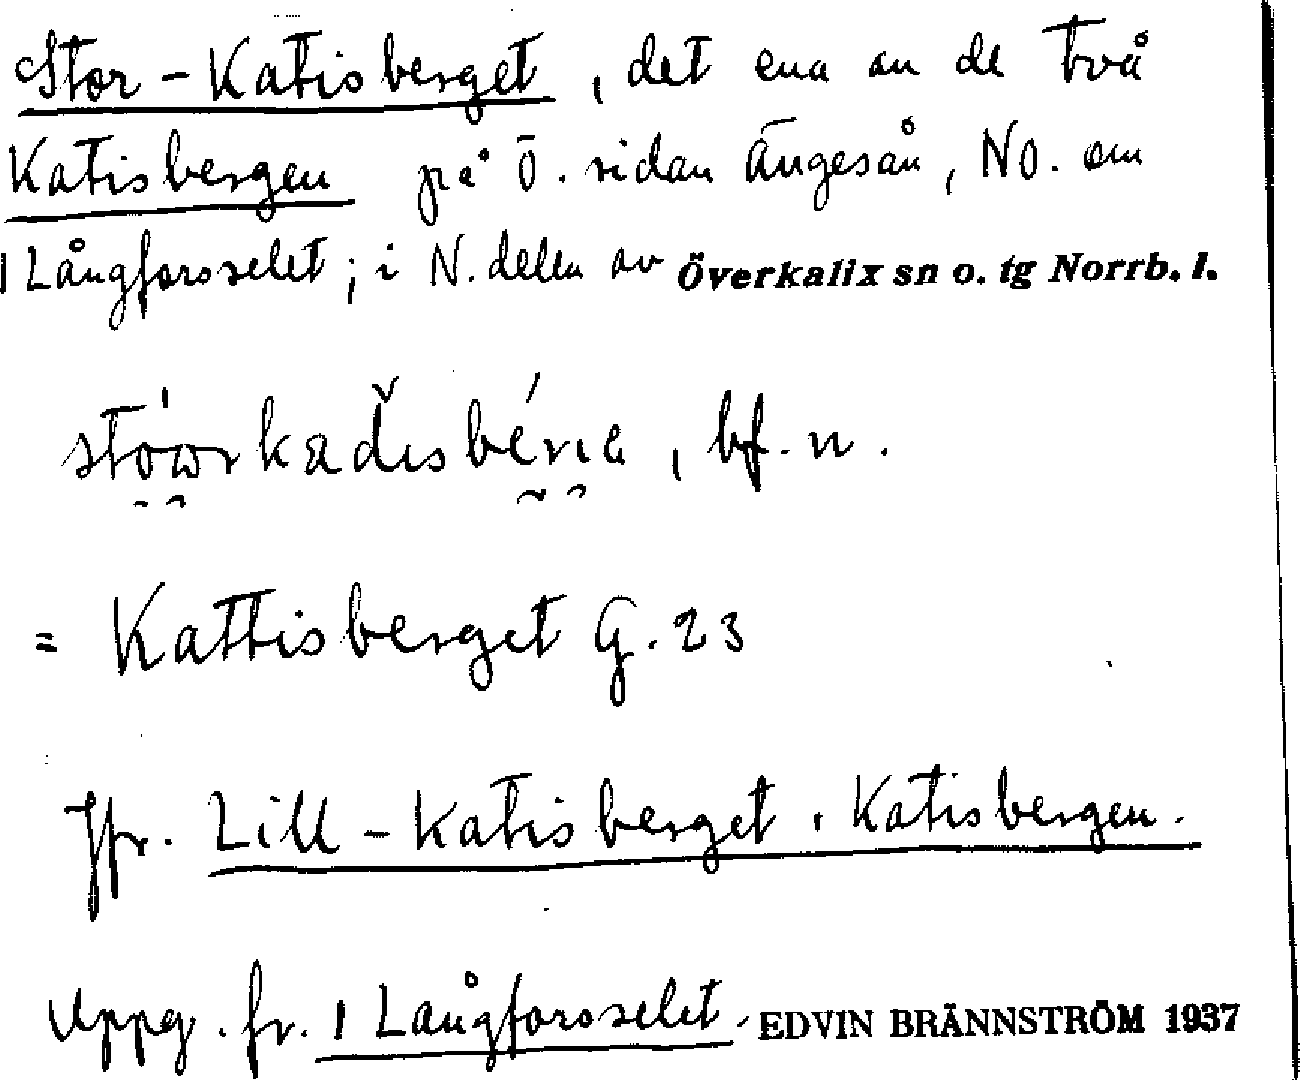 Stor-Katisberget, det ena av de två
Katisbergen på Ö. sidan Ängesån, NO. om
1 Långforsselet; i N. delen av Överkalix sn o. tg Norrb. l.
bf. n.
= Kattisberget G. 23
Jfr. Lill-Katisberget, Katisbergen.
Uppg. fr. 1 Långforsselet. EDVIN BRÄNNSTRÖM 1937